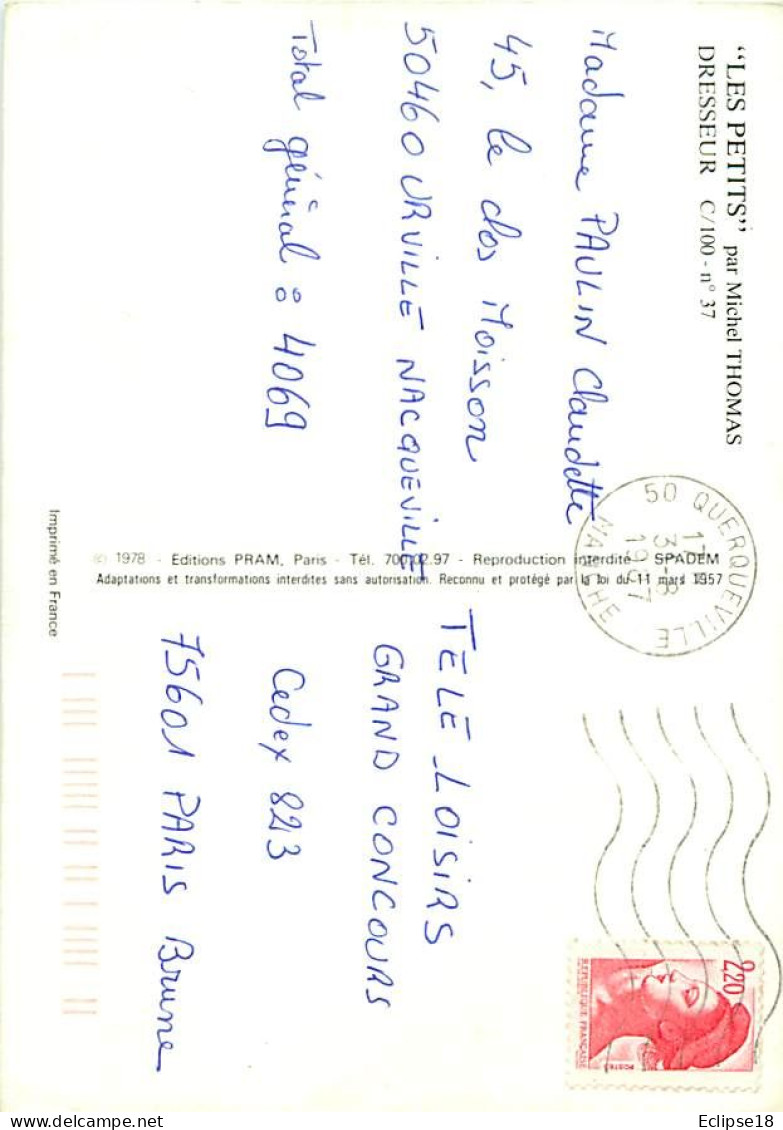 “LES PETITS” par Michel THOMAS
DRESSEUR C/100 - n° 37
Madame PAULIN Claudette
45, le clos Moisson
50460 URVILLE NACQUEVILLE
Total général : 4069
© 1978 - Editions PRAM, Paris - Tél. 700.02.97 - Reproduction interdite - SPADEM
Adaptations et transformations interdites sans autorisation. Reconnu et protégé par la loi du 11 mars 1957
Imprimé en France
50 QUERQUEVILLE
MANCHE
2,20
REPUBLIQUE FRANÇAISE
POSTES
TELE LOISIRS
GRAND CONCOURS
Cedex 8213
75601 PARIS Brune
Eclipse18